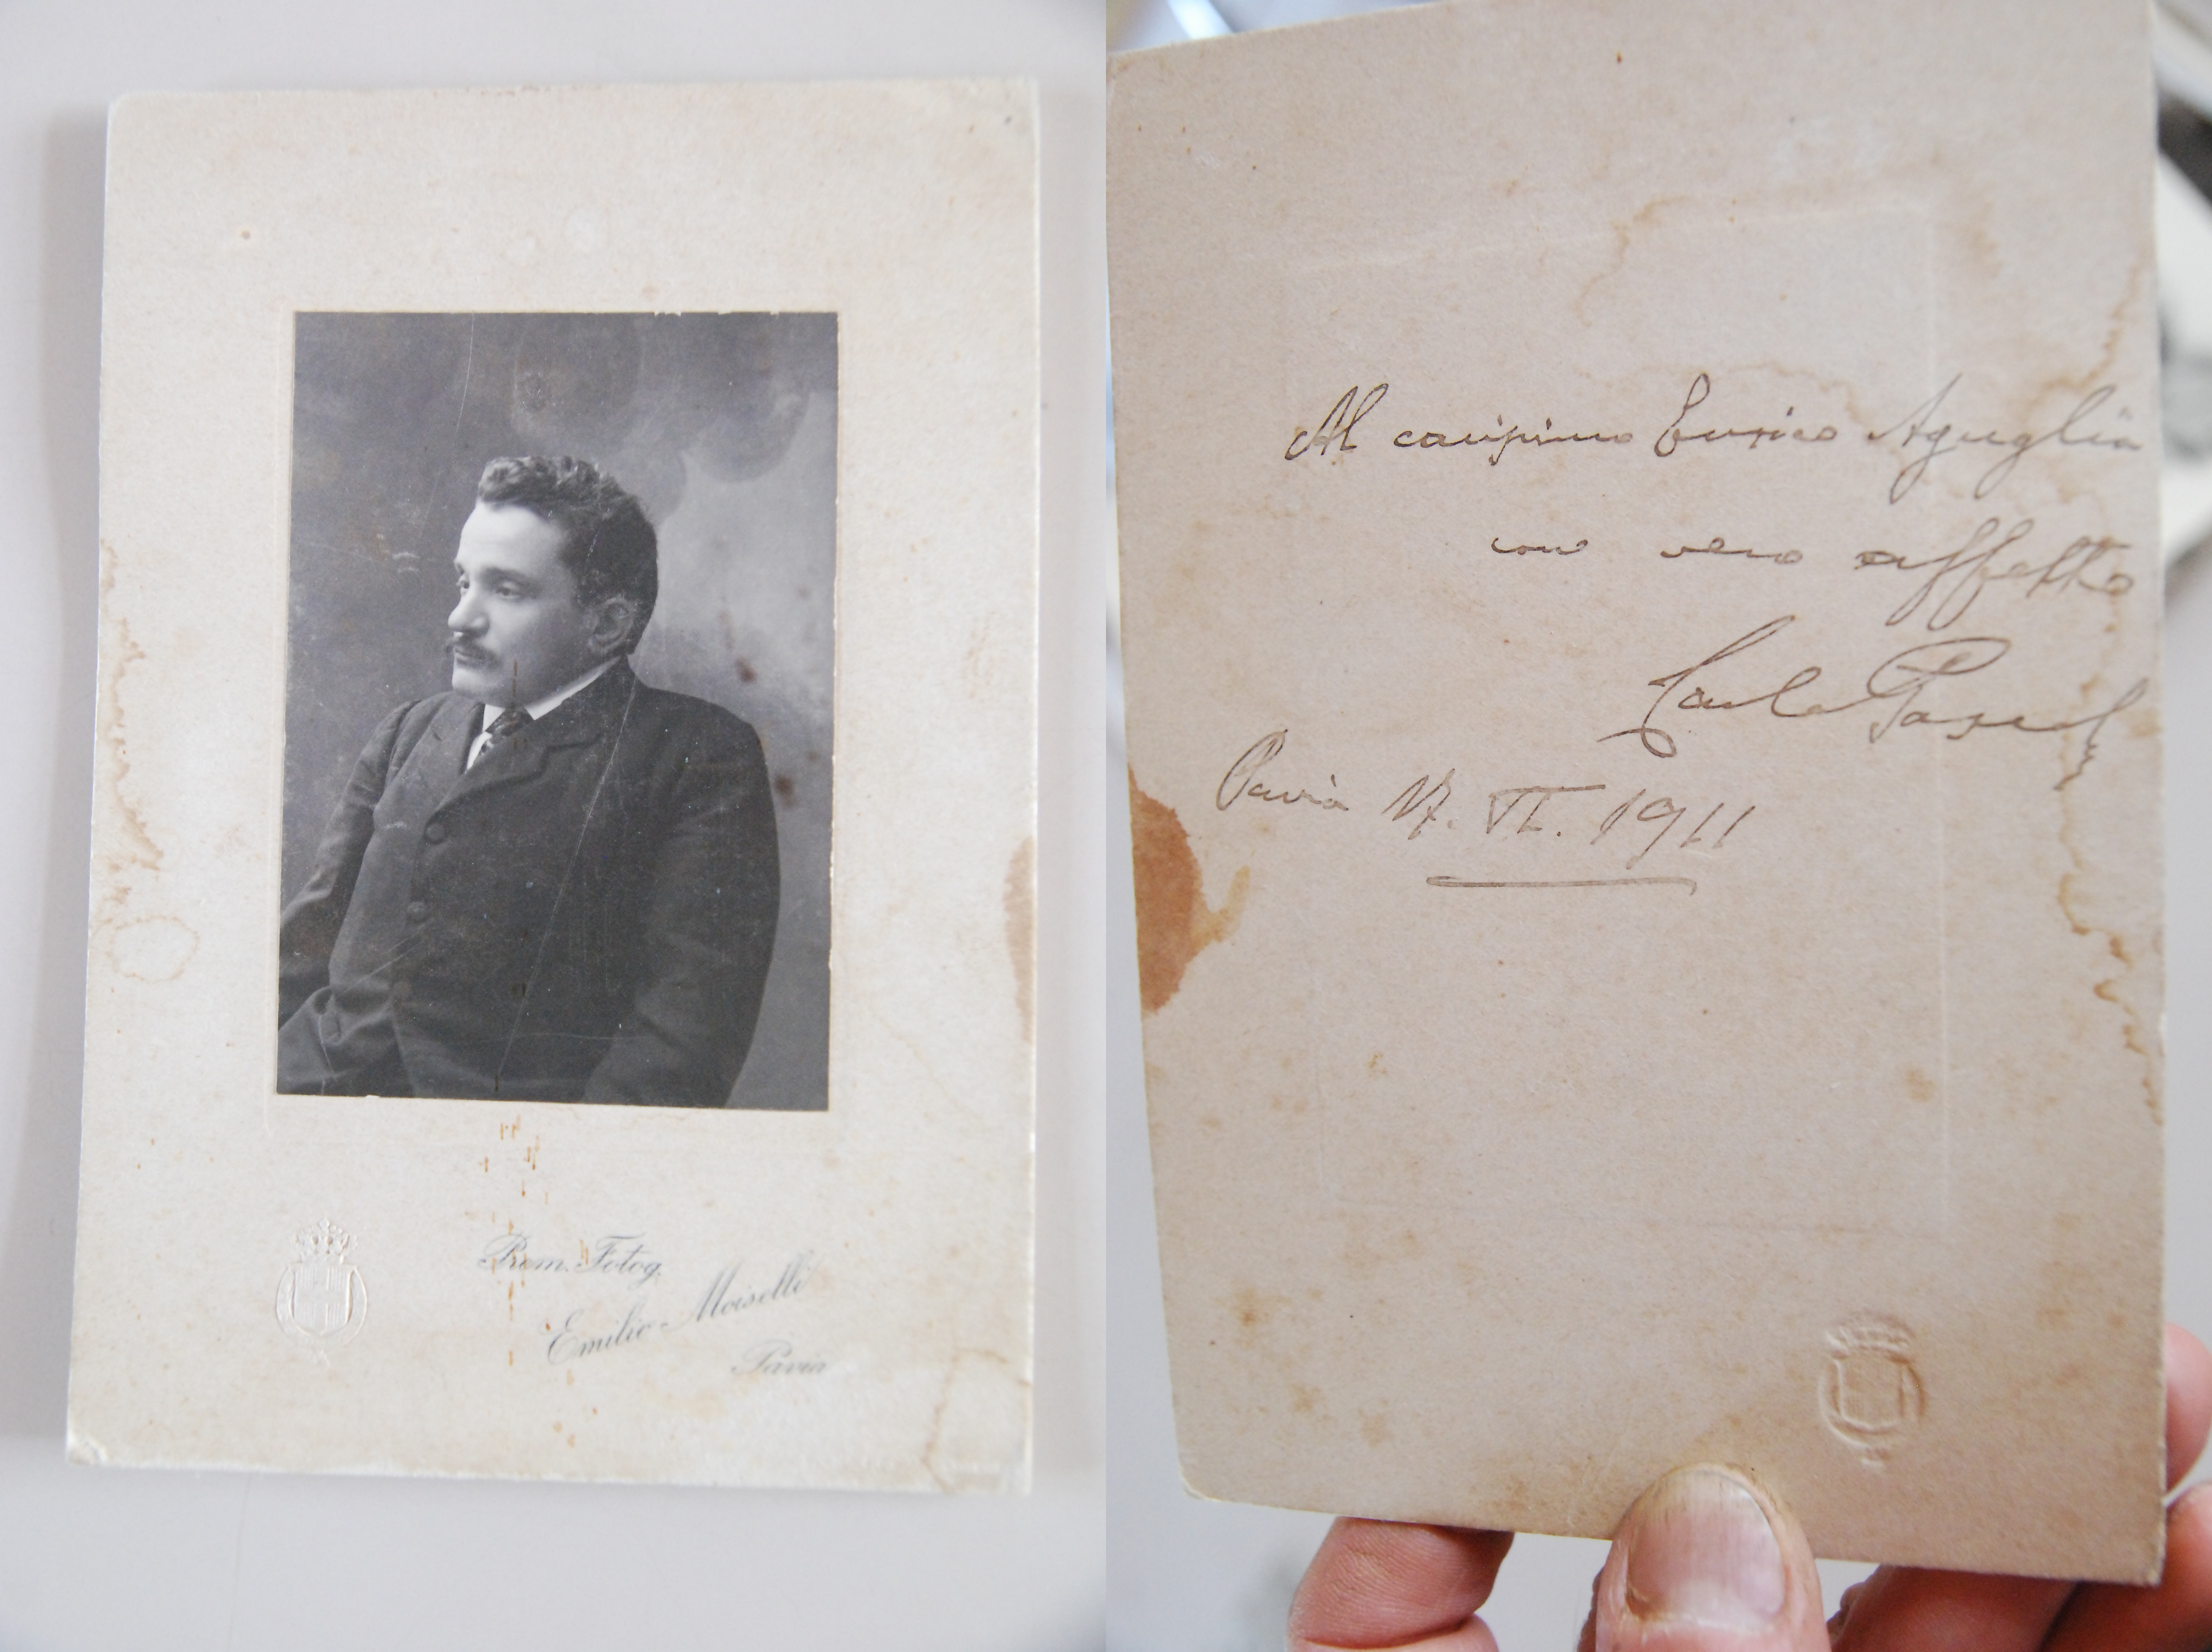 Prem. Fotog.
Emilio Moiselli
Pavia
Al carissimo Enrico Aguglia
con vero affetto
Carlo Pascal
Pavia 17. VI. 1911